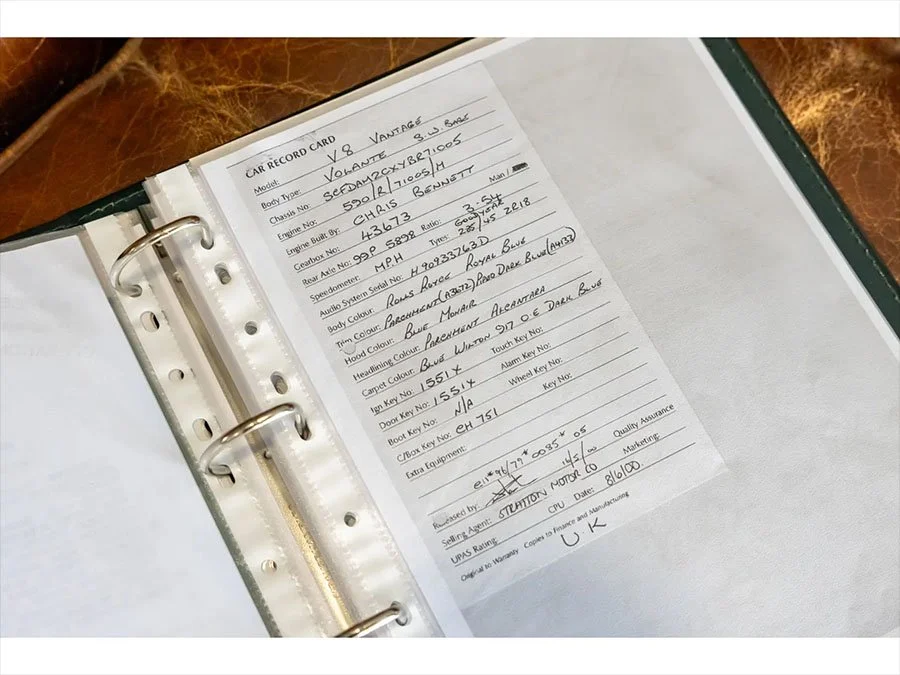 CAR RECORD CARD
Model: V8 VANTAGE
Body Type: VOLANTE S.W. BASE
Chassis No: SCFDAM2CXYBR71005
Engine No: 590/R/71005/M
Engine Built By: CHRIS BENNETT
Gearbox No: 43673 Man /
Rear Axle No: 99P 5898 Ratio: 3.54
Speedometer: MPH Tyres: GOODYEAR 285/45 ZR18
Audio System Serial No: H90933763D
Body Colour: ROLLS ROYCE ROYAL BLUE
Trim Colour: PARCHMENT (A3672) PIPED DARK BLUE (A4133)
Hood Colour: BLUE MOHAIR
Headlining Colour: PARCHMENT ALCANTARA
Carpet Colour: BLUE WILTON 917 O.E DARK BLUE
Ign Key No: 1551X Touch Key No:
Door Key No: 1551X Alarm Key No:
Boot Key No: N/A Wheel Key No:
C/Box Key No: CH 751 Key No:
Extra Equipment:
e11*96/79*0035*05
Released by: 16/5/00 Quality Assurance
Selling Agent: STRATTON MOTOR CO Marketing:
UPAS Rating: CPU Date: 8/6/00.
Original to Warranty Copies to Finance and Manufacturing
UK